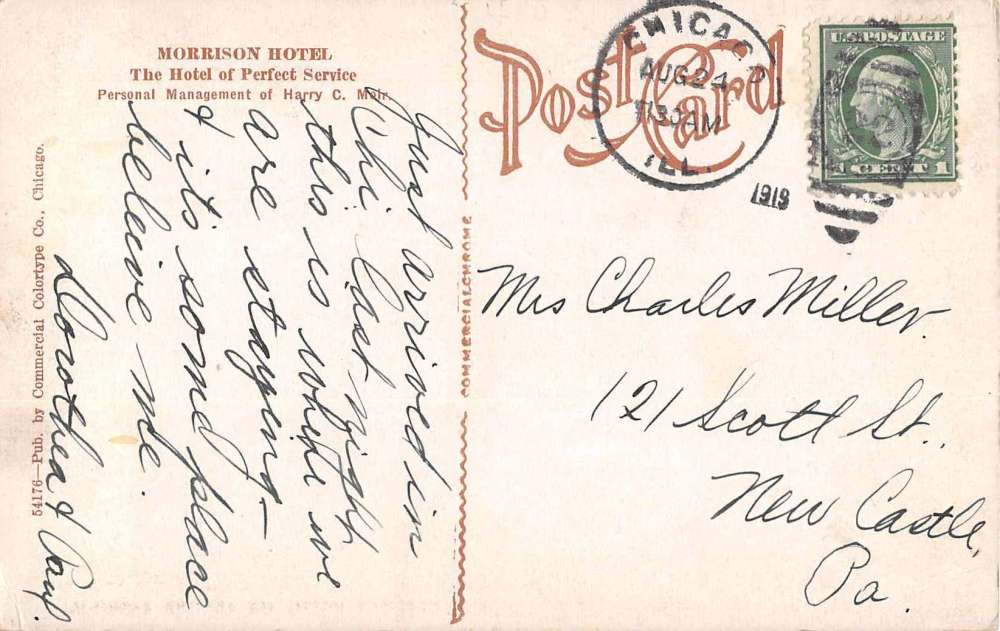 MORRISON HOTEL
The Hotel of Perfect Service
Personal Management of Harry C. Moir.
Post Card
CHICAGO
AUG 24
11 30 AM
ILL.
1919
U.S. POSTAGE
1 CENT 1
Just arrived in
Chi. last night
this is where we
are staying—
& its some place
believe me.
Dorothea & Paul.
COMMERCIALCHROME
54176—Pub. by Commercial Colortype Co., Chicago.
Mrs Charles Miller
121 Scott St.,
New Castle,
Pa.